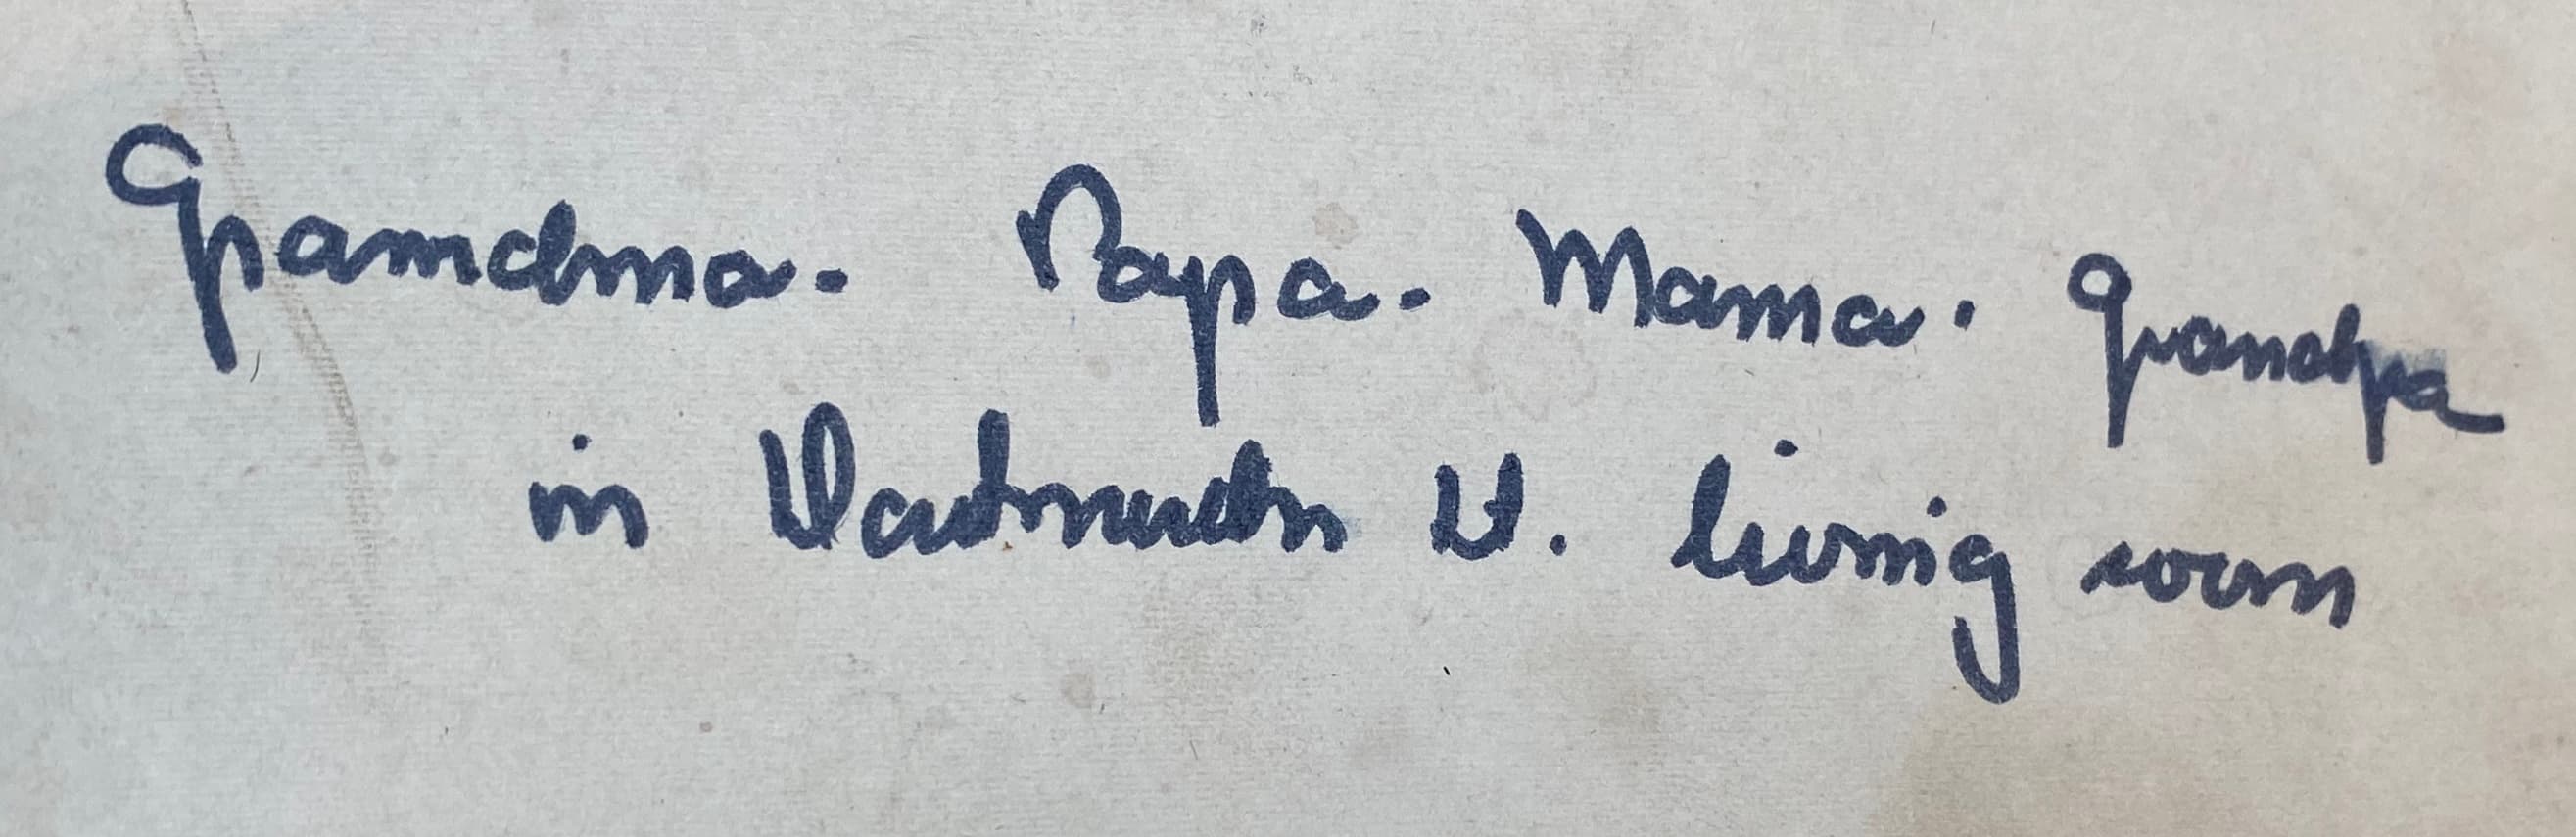 Grandma. Papa. Mama. Grandpa
in Dartmouth St. living room